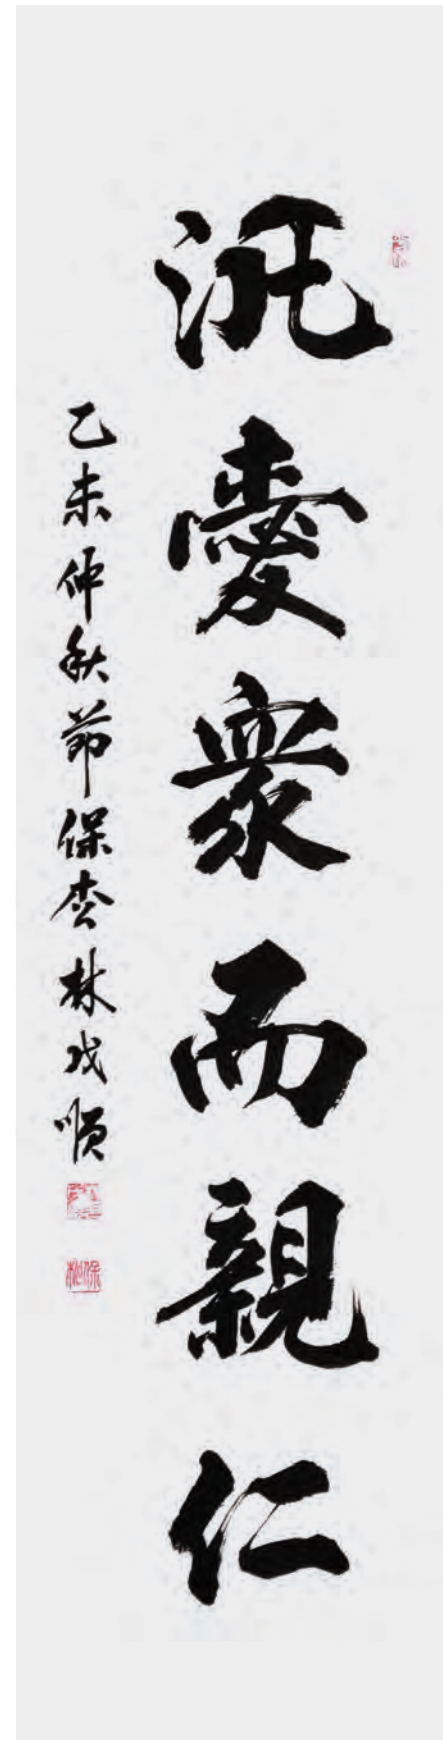 汎愛衆而親仁
乙未仲秋節保枩林戊順